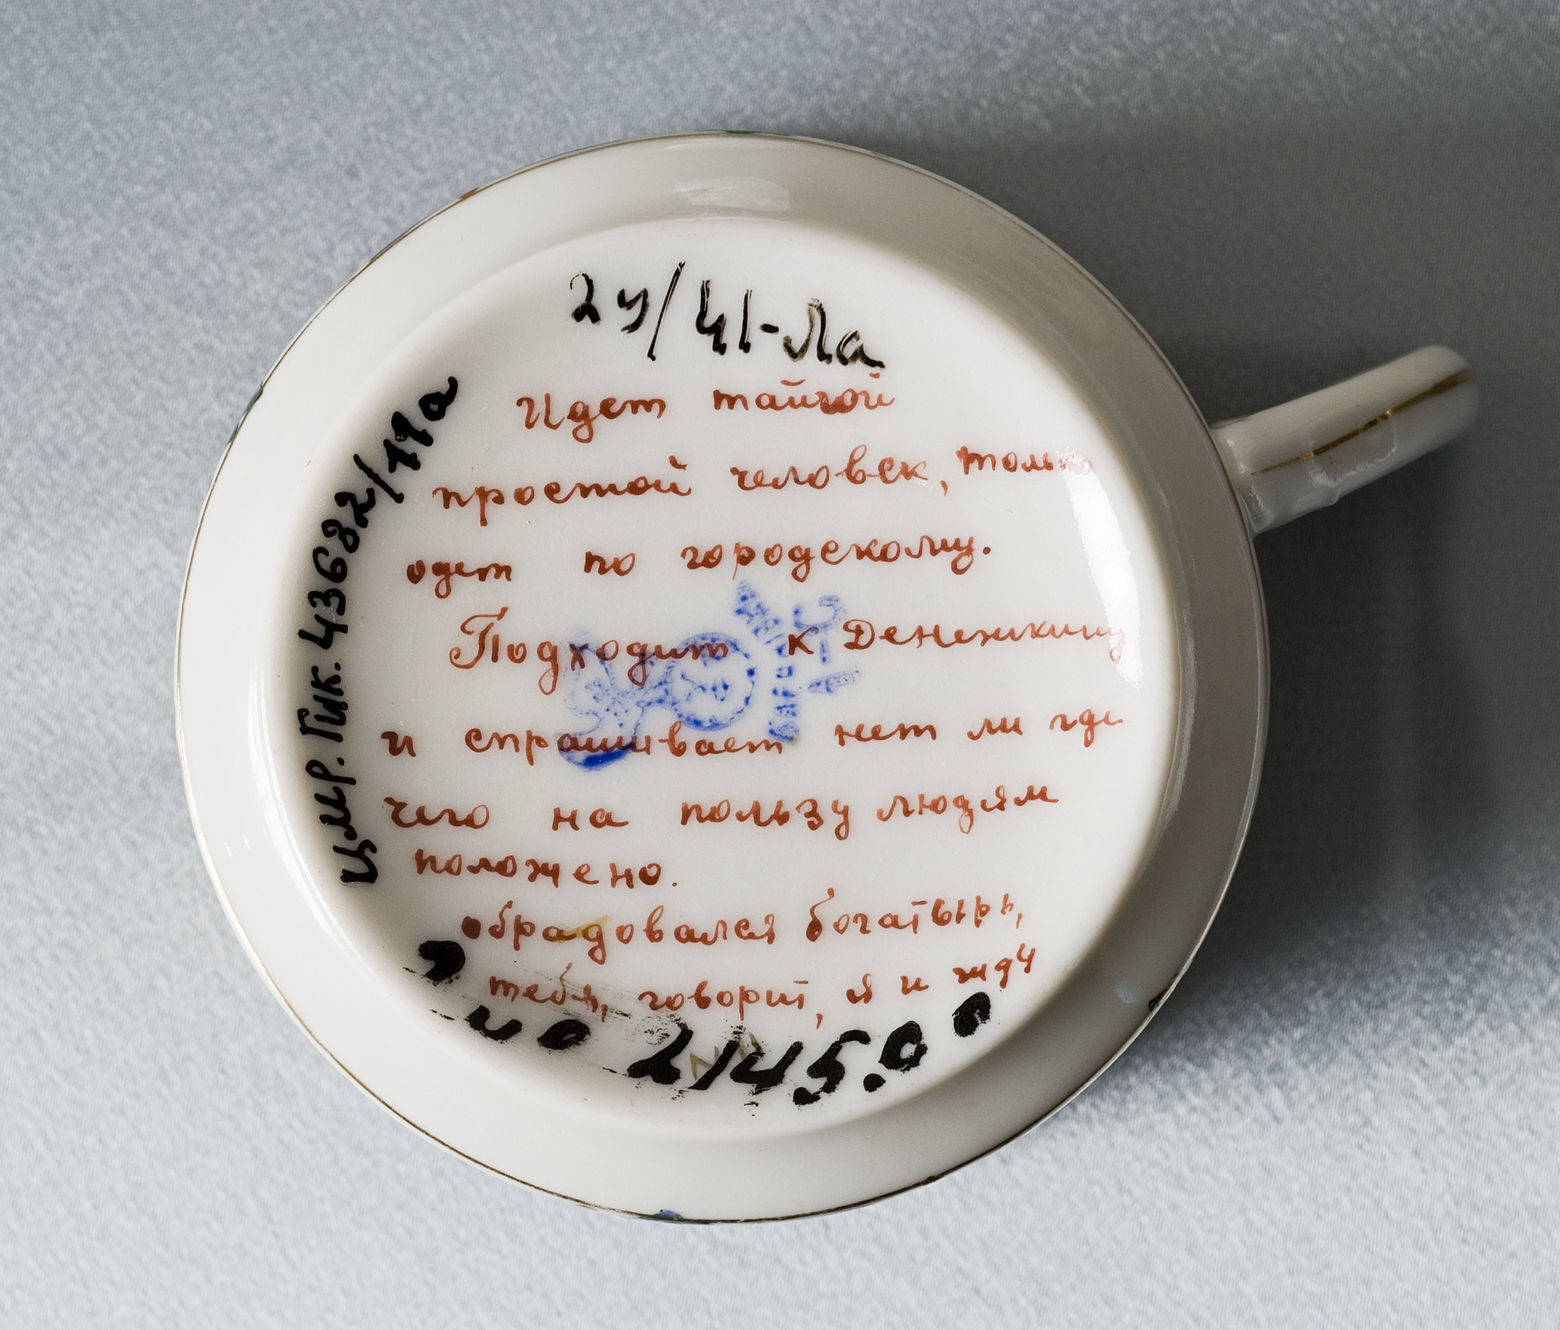 2у/41-Ла
Идет тайгой
простой человек, только
одет по городскому.
Подходит к Денежкину
и спрашивает нет ли где
чего на пользу людям
положено.
обрадовался богатырь,
тебя, говорит, я и жду
по 2145.00
ЦМР. Гик. 43682/19а